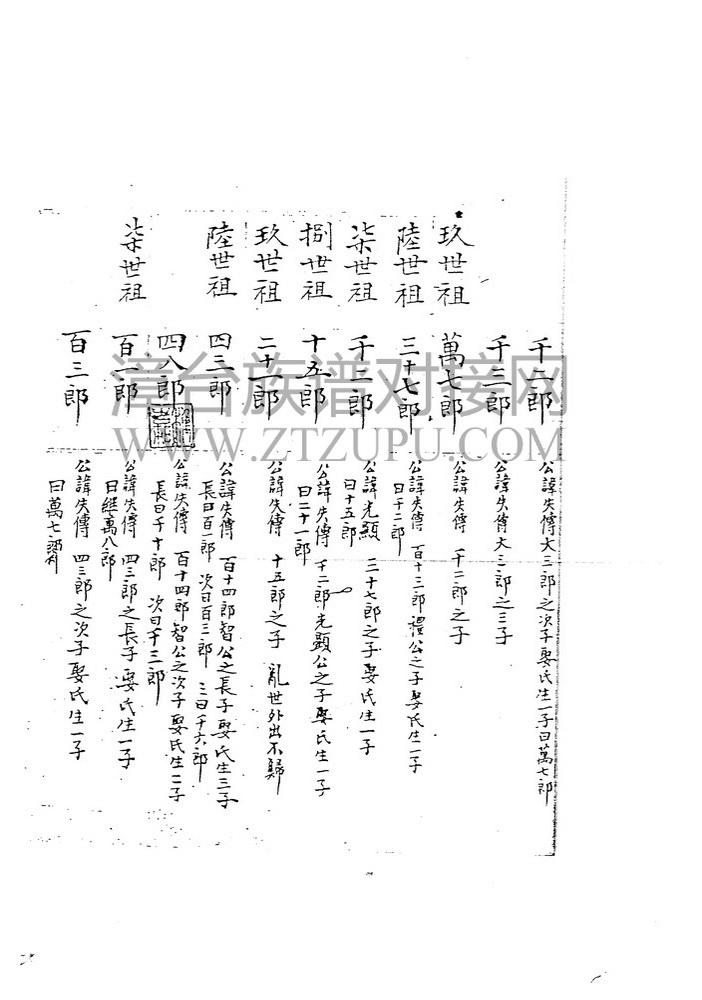 千二郎 公諱失傳大三郎之次子娶氏生一子曰萬七郎
千三郎 公諱失傳大三郎之三子
玖世祖 萬七郎 公諱失傳 千二郎之子
陸世祖 三十七郎 公諱失傳 百十三郎禮公之子娶氏生一子
曰千二郎
柒世祖 千二郎 公諱光顯 三十七郎之子娶氏生一子
曰十五郎
捌世祖 十五郎 公諱失傳 千二郎光顯公之子娶氏生一子
曰二十一郎
玖世祖 二十一郎 公諱失傳 十五郎之子 亂世外出不歸
陸世祖 四三郎 公諱失傳 百十四郎智公之長子娶氏生三子
長曰百一郎 次曰百三郎 三曰千六郎
四八郎 公諱失傳 百十四郎智公之次子娶氏生二子
長曰千十郎 次曰千三郎
柒世祖 百一郎 公諱失傳 四三郎之長子娶氏生一子
曰繼萬八郎
百三郎 公諱失傳 四三郎之次子娶氏生一子
曰萬七郎
漳台族谱对接网
WWW.ZTZUPU.COM